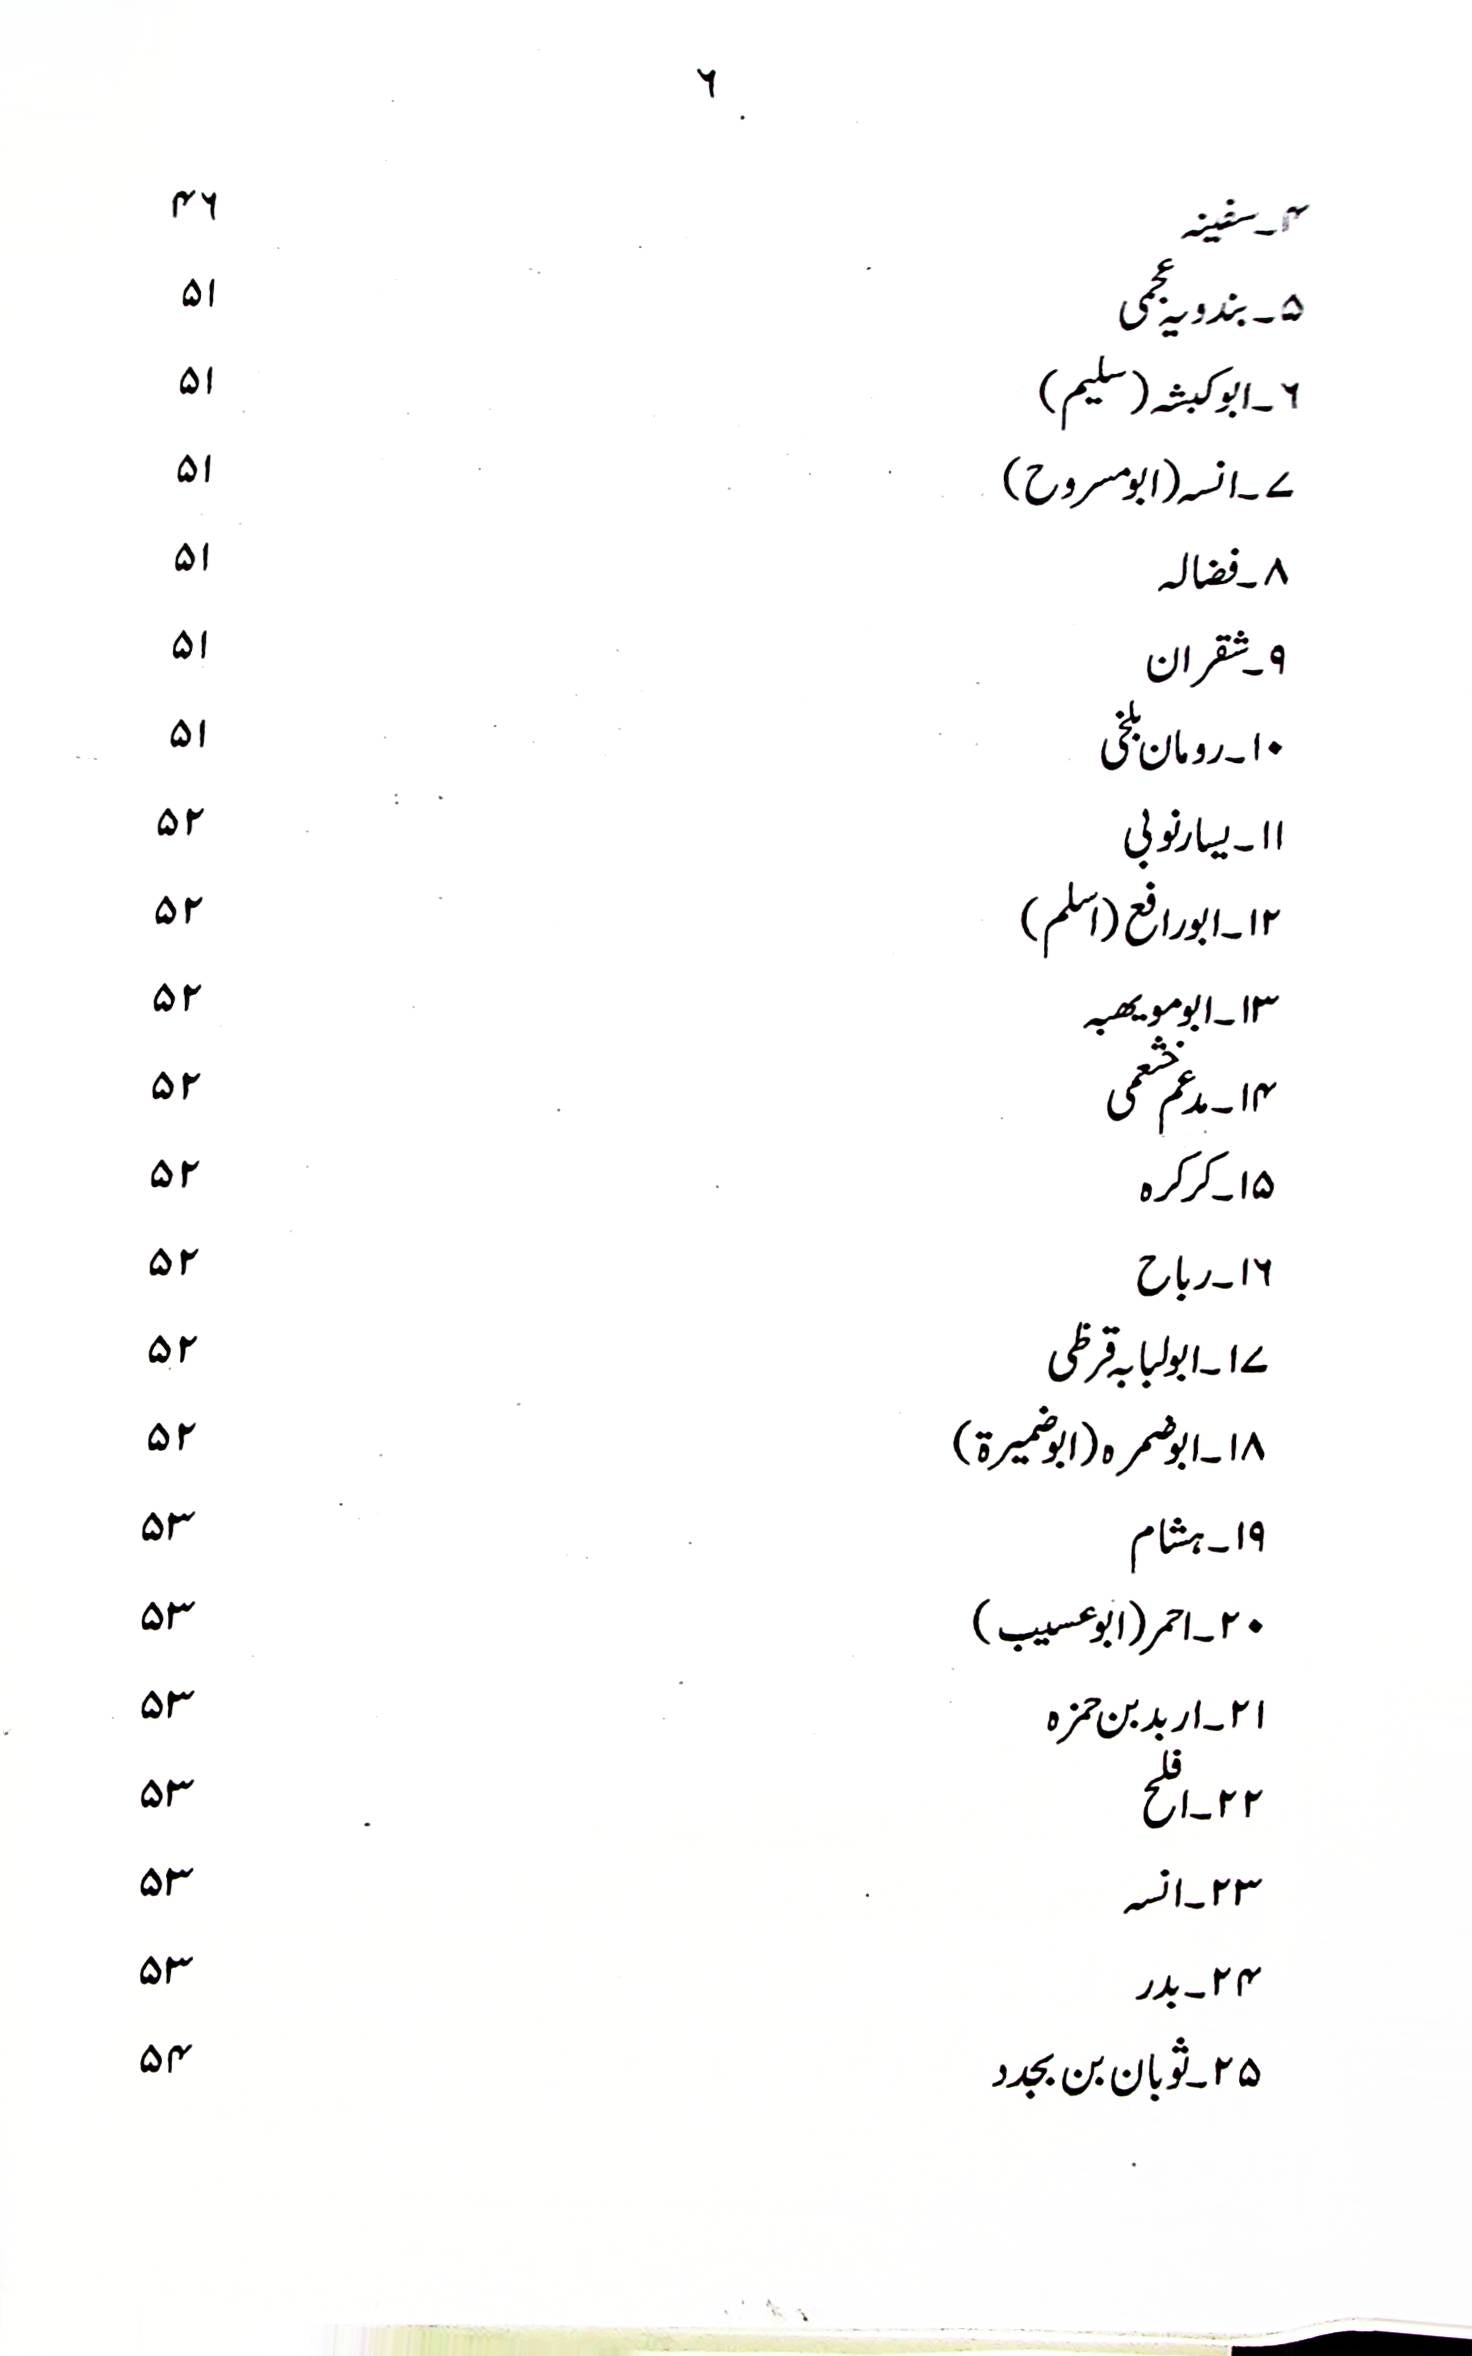 ۶
۴۔سفینہ ۴۶
۵۔بندویہ عجمی ۵۱
۶۔ابوکبشہ (سلیم) ۵۱
۷۔انسہ (ابومسروح) ۵۱
۸۔فضالہ ۵۱
۹۔شقران ۵۱
۱۰۔رومان بلخی ۵۱
۱۱۔یسار نوبی ۵۲
۱۲۔ابورافع (اسلم) ۵۲
۱۳۔ابومویھبہ ۵۲
۱۴۔مدعم خثعمی ۵۲
۱۵۔کرکرہ ۵۲
۱۶۔رباح ۵۲
۱۷۔ابولبابہ قرظی ۵۲
۱۸۔ابوضمرہ (ابوضمیرة) ۵۲
۱۹۔ہشام ۵۳
۲۰۔احمر (ابوعسیب) ۵۳
۲۱۔اربد بن حمزہ ۵۳
۲۲۔افلح ۵۳
۲۳۔انسہ ۵۳
۲۴۔بدر ۵۳
۲۵۔ثوبان بن بجدد ۵۴